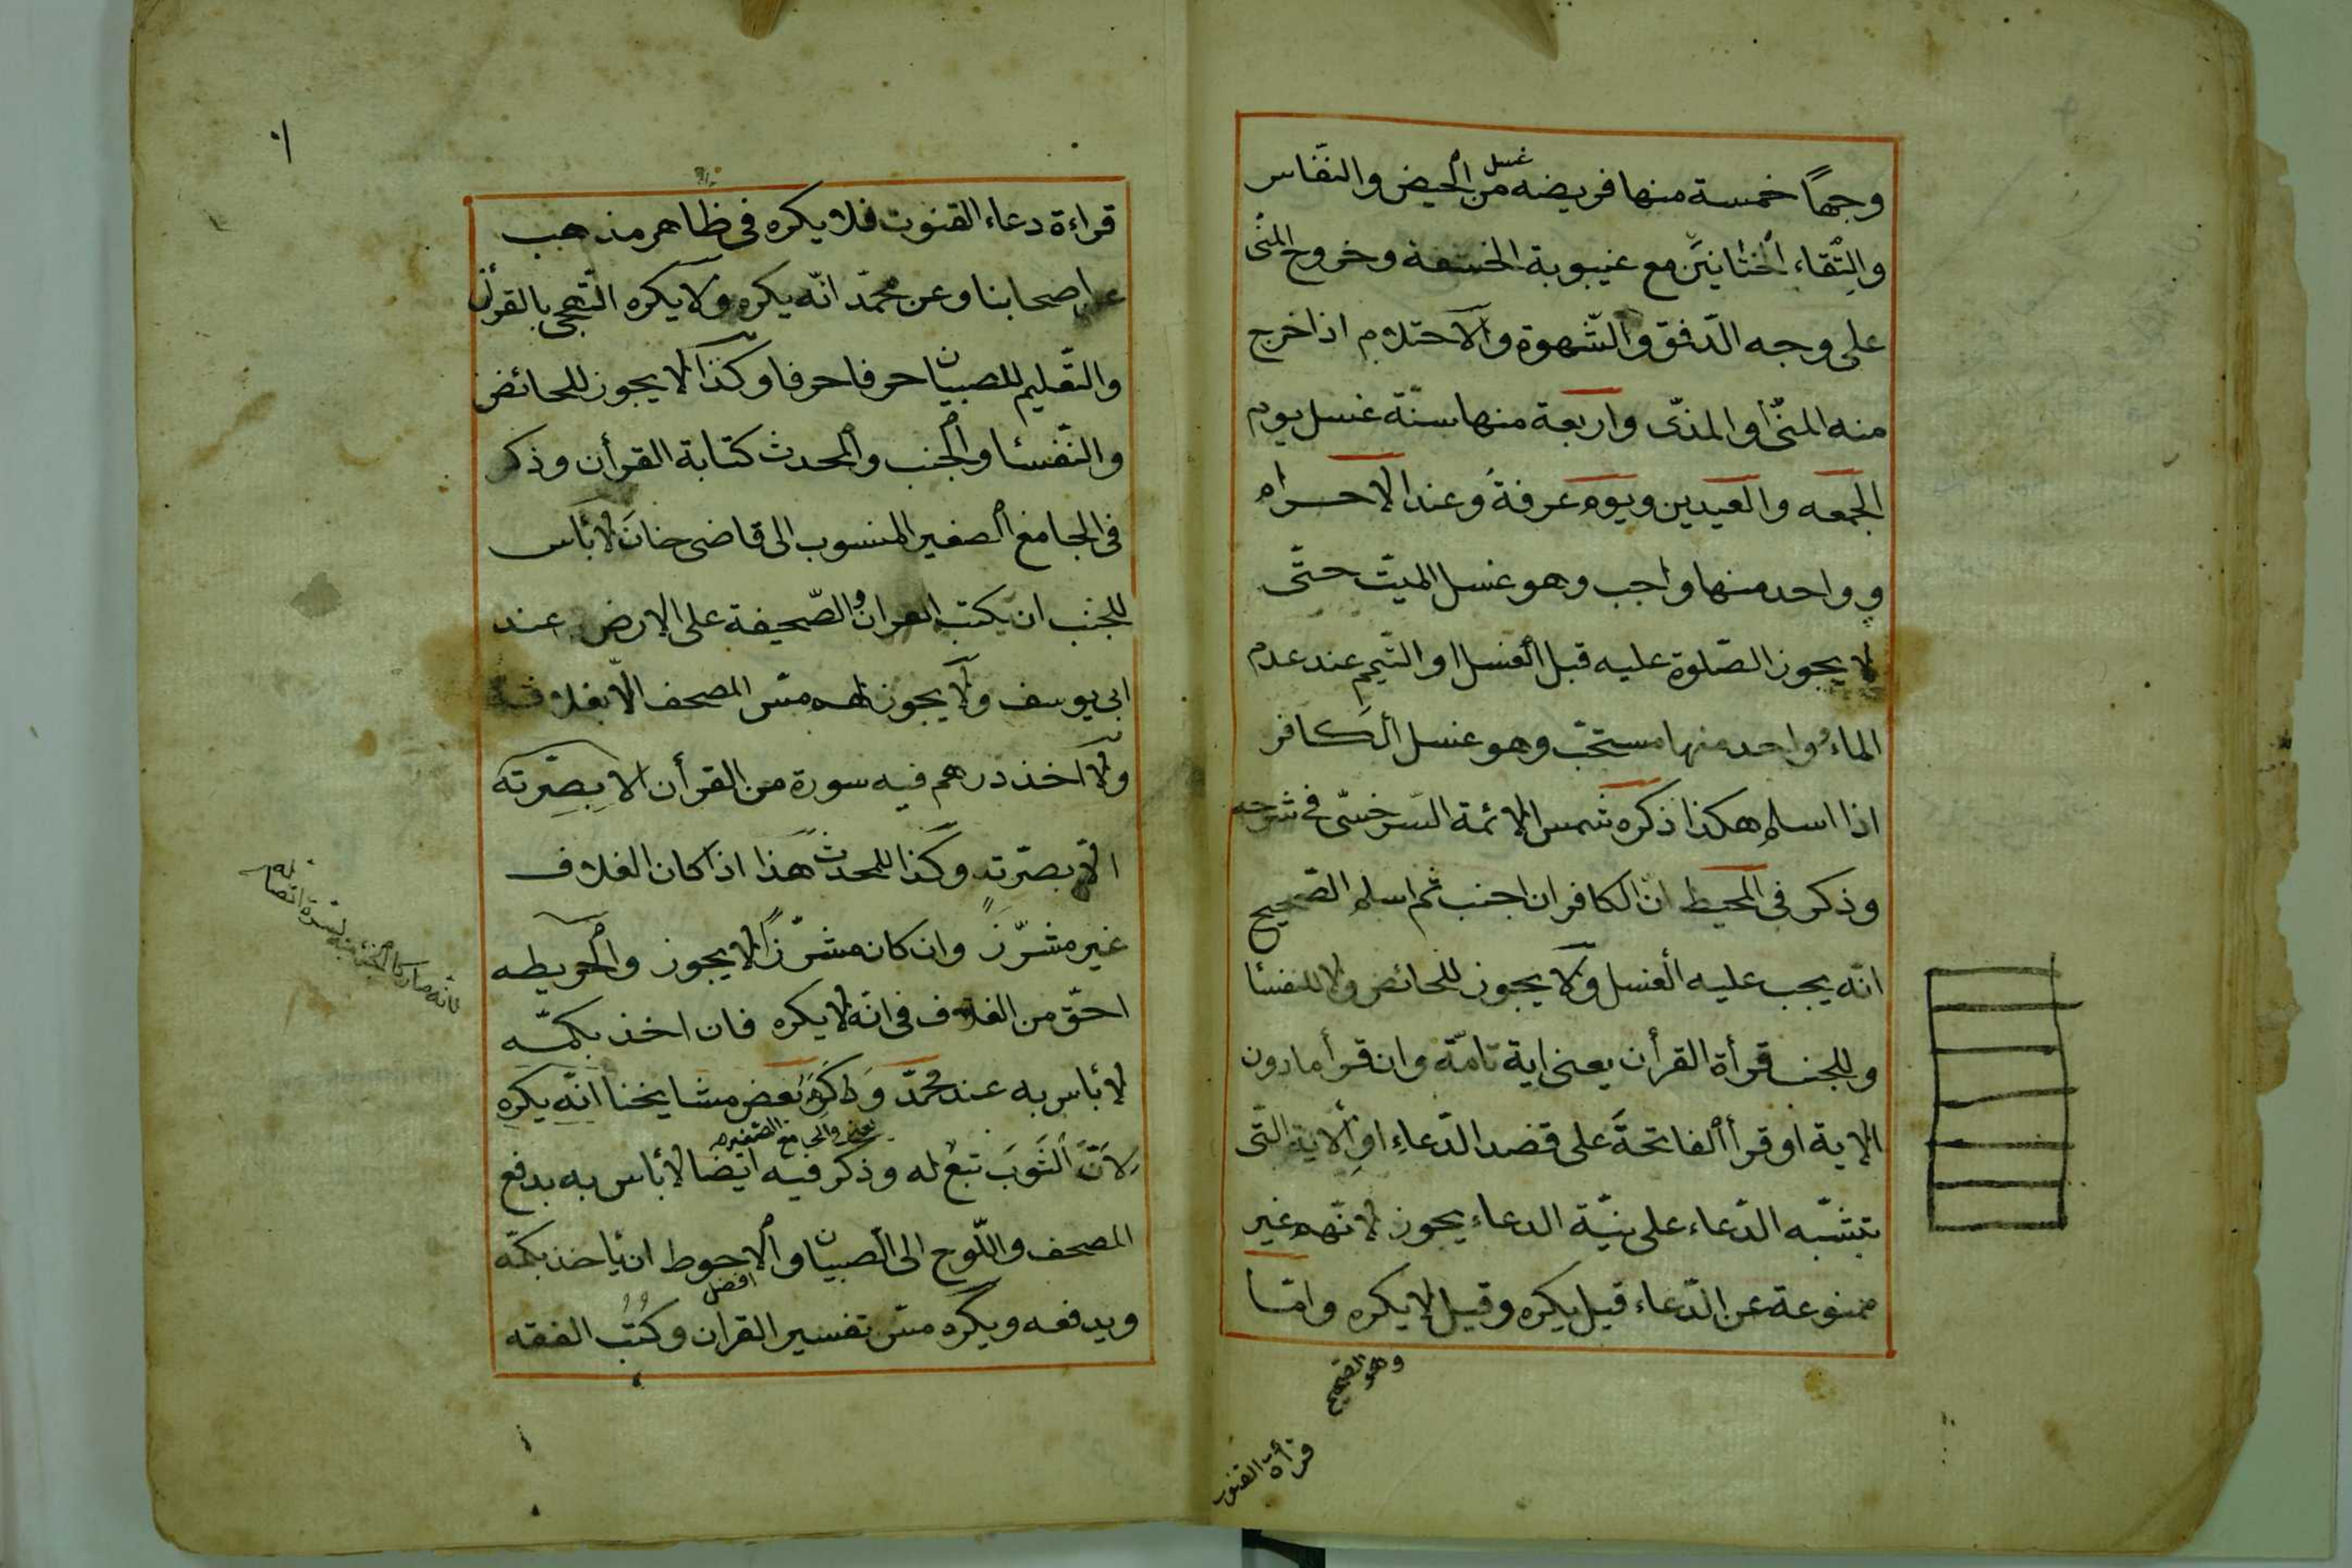 وجهًا خمسة منها فريضه غسل من الحيض والنفّاس
والتقاء الختانين مع غيبوبة الحشفة وخروج المنى
على وجه الدّفق والشّهوة والاحتلام اذا خرج
منه المنىّ او المذىّ واربعة منها سنّة غسل يوم
الجمعه والعيدين ويوم عرفة وعند الاحرام
و واحد منها واجب وهو غسل الميّت حتّى
لا يجوز الصّلوة عليه قبل الغسل او التّيمم عند عدم
الماء وواحد منها مستحبّ وهو غسل الكافر
اذا اسلم هكذا ذكره شمس الائمة السّرخسىّ فى شرحه
وذكر فى المحيط انّ الكافر ان اجنب ثم اسلم الصّحيح
انّه يجب عليه الغسل ولا يجوز للحائض ولا للنفسا
وللجنب قرأة القرأن يعنى اية تامّة وان قرأ ما دون
الاية او قرأ الفاتحة على قصد الدّعاء او الاية التى
تشبّه الدّعاء على نيّة الدعاء يجوز لانّهم غير
ممنوعة عن الدّعاء قيل يكره وقيل لا يكره وامّا
وهو الصّحيح
قرأة القنوت
قراءة دعاء القنوت فلا يكره فى ظاهر مذهب
اصحابنا وعن محمّد انّه يكره ولا يكره التّهجى بالقرأن
والتّعليم للصبيان حرفا حرفا وكذا لا يجوز للحائض
والنّفسا والجنب والمحدث كتابة القرأن وذكر
فى الجامع الصغير المنسوب الى قاضى خان لا بأس
للجنب ان يكتب القران والصّحيفة على الارض عند
ابى يوسف ولا يجوز لهم مسّ المصحف الّا بغلافه
ولا اخذ درهم فيه سورة من القرأن الا بصرّته
الّا بصرّته وكذا للمحدث هذا اذا كان الغلاف
غير مشرّز وان كان مشرّزًا لا يجوز والخريطه
احقّ من الغلاف فى انّه لا يكره فان اخذ بكمّه
لا بأس به عند محمّد وكره بعض مشايخنا انّه يكره
يعنى والجامع الصّغير
لانّ الثّوب تبع له وذكر فيه ايضا لا بأس به بدفع
المصحف واللّوح الى الصبيان والاحوط ان يأخذ بكمّه
افضل
ويدفعه ويكره مسّ تفسير القران وكتب الفقه